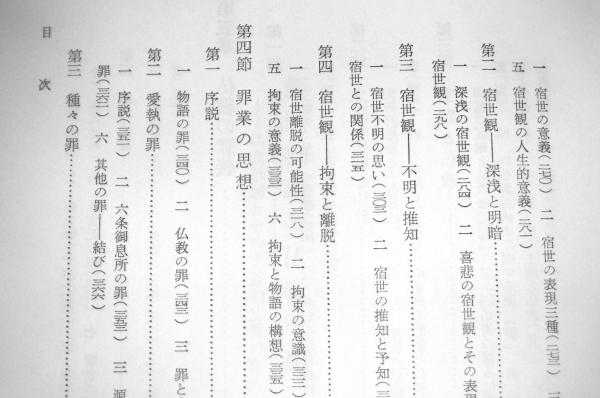 一 宿世の意義(二七〇) 二 宿世の表現三種(二七三)
五 宿世観の人生的意義(二八一)
第二 宿世観――深浅と明暗
一 深浅の宿世観(二八四) 二 喜悲の宿世観とその表現
宿世観(二九八)
第三 宿世観――不明と推知
一 宿世不明の思い(三〇三) 二 宿世の推知と予知(三
宿世との関係(三一五)
第四 宿世観――拘束と離脱
一 宿世離脱の可能性(三一八) 二 拘束の意識(三二二)
五 拘束の意義(三三三) 六 拘束と物語の構想(三三五)
第四節 罪業の思想
第一 序説
一 物語の罪(三四〇) 二 仏教の罪(三四三) 三 罪と
第二 愛執の罪
一 序説(三五一) 二 六条御息所の罪(三五三) 三 源
罪(三六二) 六 其他の罪――結び(三六六)
第三 種々の罪
目次